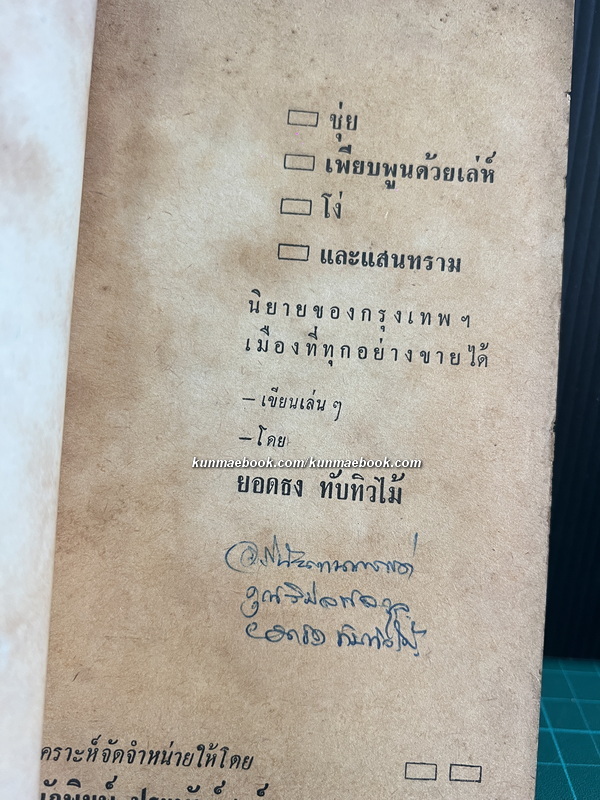 ชุ่ย
เพียบพูนด้วยเล่ห์
โง่
และแสนทราม
นิยายของกรุงเทพฯ
เมืองที่ทุกอย่างขายได้
—เขียนเล่นๆ
—โดย
kunmaebook.com/kunmaebook.com
ยอดธง ทับทิวไม้
ยอดธง ทับทิวไม้
คราะห์จัดจำหน่ายให้โดย